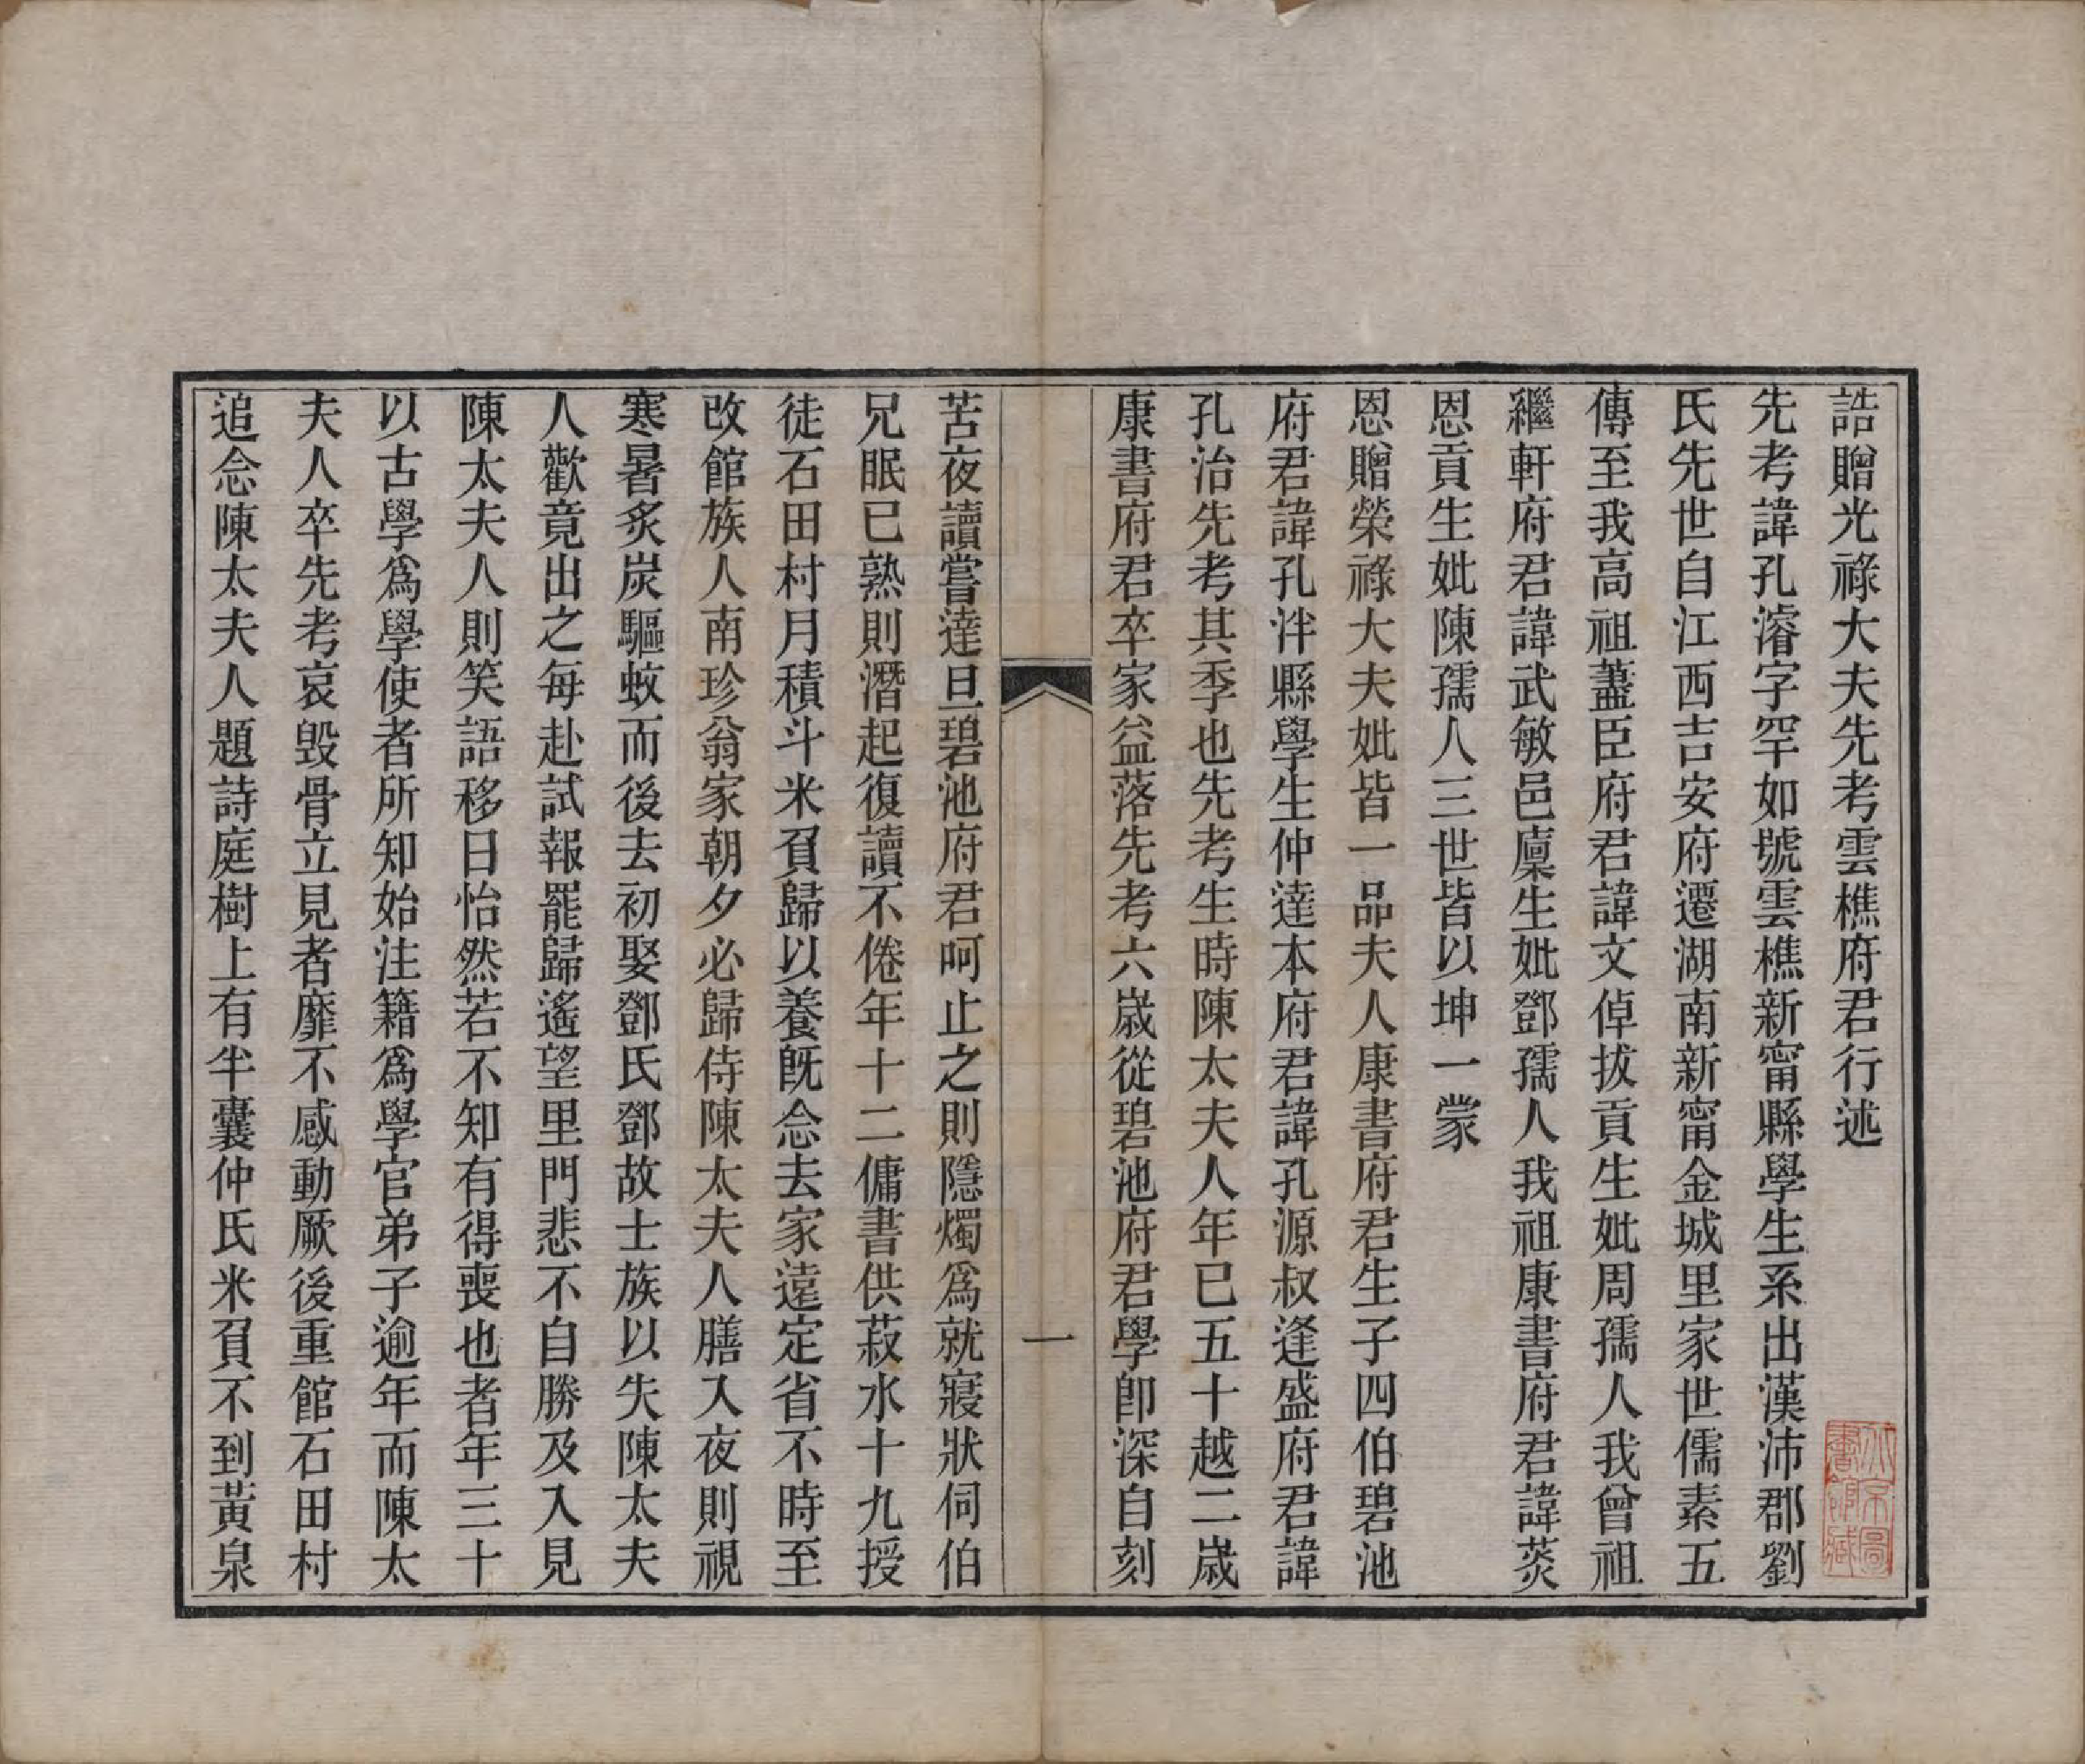 誥贈光祿大夫先考雲樵府君行述
先考諱孔濬字罕如號雲樵新甯縣學生系出漢沛郡劉
氏先世自江西吉安府遷湖南新甯金城里家世儒素五
傳至我高祖藎臣府君諱文倬拔貢生妣周孺人我曾祖
繼軒府君諱武敏邑廩生妣鄧孺人我祖康書府君諱葵
恩貢生妣陳孺人三世皆以坤一蒙
恩贈榮祿大夫妣皆一品夫人康書府君生子四伯碧池
府君諱孔泮縣學生仲達本府君諱孔源叔逢盛府君諱
孔治先考其季也先考生時陳太夫人年已五十越二歲
康書府君卒家益落先考六歲從碧池府君學卽深自刻
一
苦夜讀嘗達旦碧池府君呵止之則隱燭爲就寢狀伺伯
兄眠已熟則潛起復讀不倦年十二傭書供菽水十九授
徒石田村月積斗米負歸以養旣念去家遠定省不時至
改館族人南珍翁家朝夕必歸侍陳太夫人膳入夜則視
寒暑炙炭驅蚊而後去初娶鄧氏鄧故士族以失陳太夫
人歡竟出之每赴試報罷歸遙望里門悲不自勝及入見
陳太夫人則笑語移日怡然若不知有得喪也者年三十
以古學爲學使者所知始注籍爲學官弟子逾年而陳太
夫人卒先考哀毀骨立見者靡不感動厥後重館石田村
追念陳太夫人題詩庭樹上有半囊仲氏米負不到黃泉